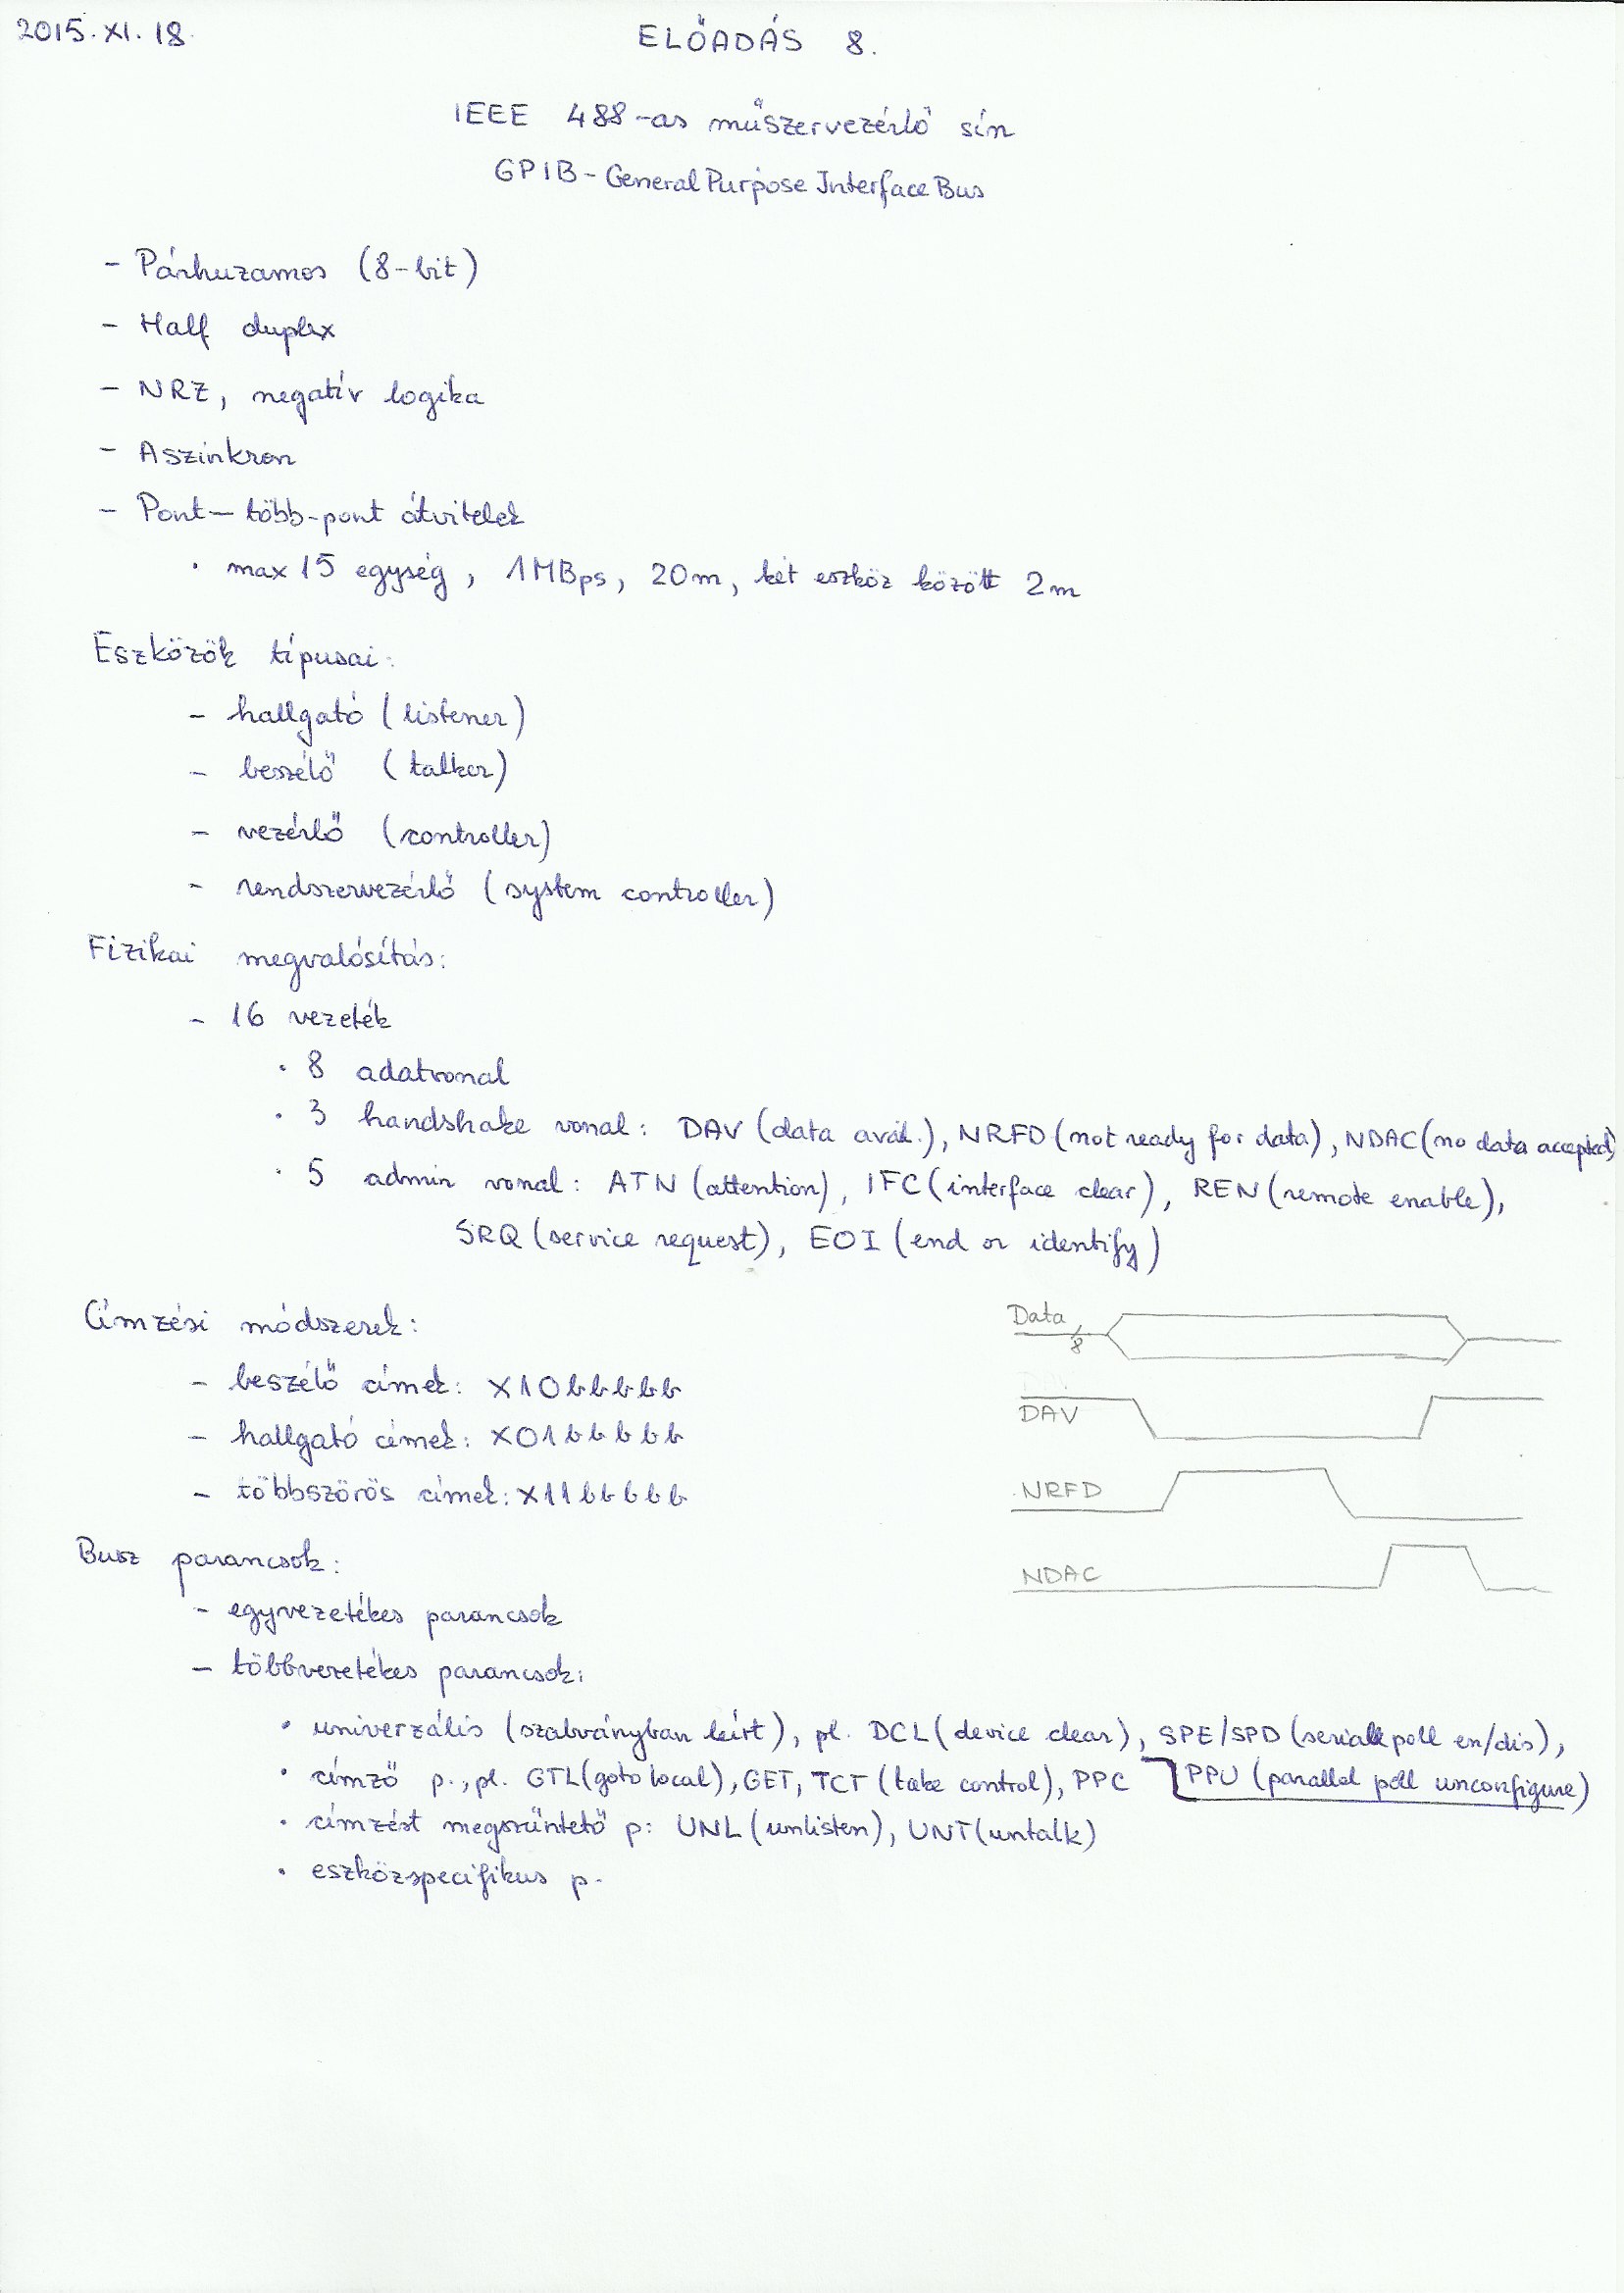 2015. XI. 18.
ELŐADÁS 8.
IEEE 488-as műszervezérlő sín
GPIB - General Purpose Interface Bus
- Párhuzamos (8-bit)
- Half duplex
- NRZ, negatív logika
- Aszinkron
- Pont—több-pont átvitelek
· max 15 egység, 1MBps, 20m, két eszköz között 2m
Eszközök típusai:
- hallgató (listener)
- beszélő (talker)
- vezérlő (controller)
- rendszervezérlő (system controller)
Fizikai megvalósítás:
- 16 vezeték
· 8 adatvonal
· 3 handshake vonal: DAV (data avail.), NRFD (not ready for data), NDAC (no data accepted)
· 5 admin vonal: ATN (attention), IFC (interface clear), REN (remote enable),
SRQ (service request), EOI (end or identify)
Címzési módszerek:
- beszélő címek: X10bbbbb
- hallgató címek: X01bbbbb
- többszörös címek: X11bbbbb
Data 8
DAV
NRFD
NDAC
Busz parancsok:
- egyvezetékes parancsok
- többvezetékes parancsok:
· univerzális (szabványban leírt), pl. DCL (device clear), SPE/SPD (serial poll en/dis),
PPU (parallel poll unconfigure)
· címző p., pl. GTL (goto local), GET, TCT (take control), PPC
· címzést megszüntető p: UNL (unlisten), UNT (untalk)
· eszközspecifikus p.